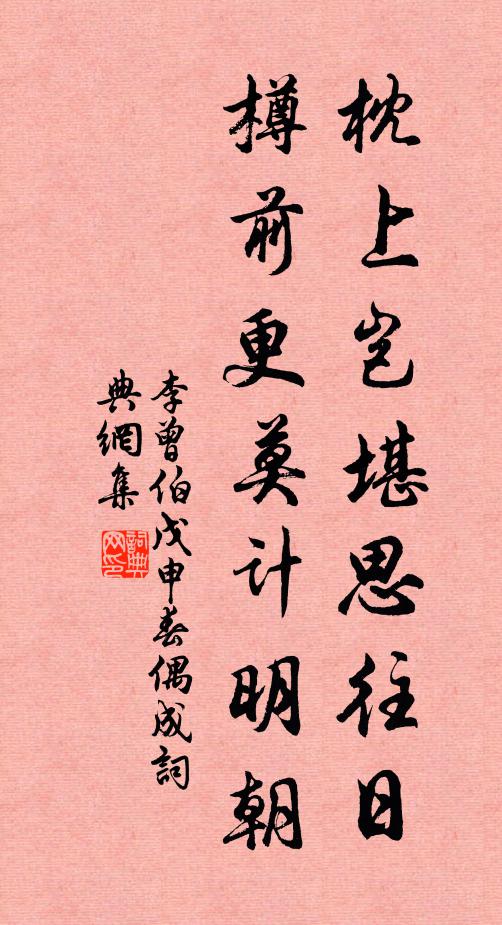 枕上豈堪思往日
樽前更莫計明朝
李曾伯戊申春偶成詞
典網集
詞典
网印